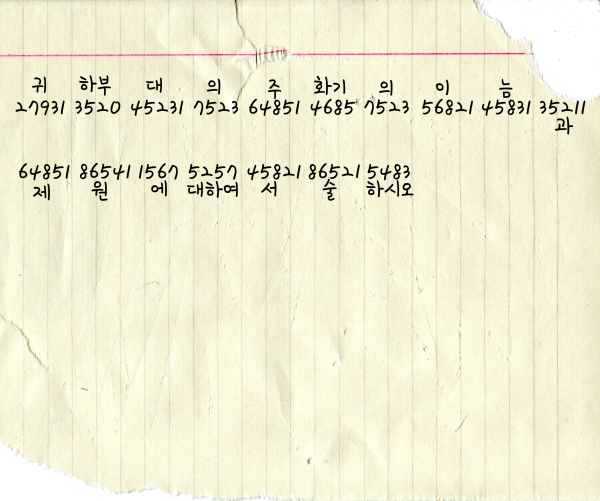 귀 하부 대 의 주 화기 의 이 능
27931 3520 45231 7523 64851 4685 7523 56821 45831 35211
과
64851 86541 1567 5257 45821 86521 5483
제 원 에 대하여 서 술 하시오